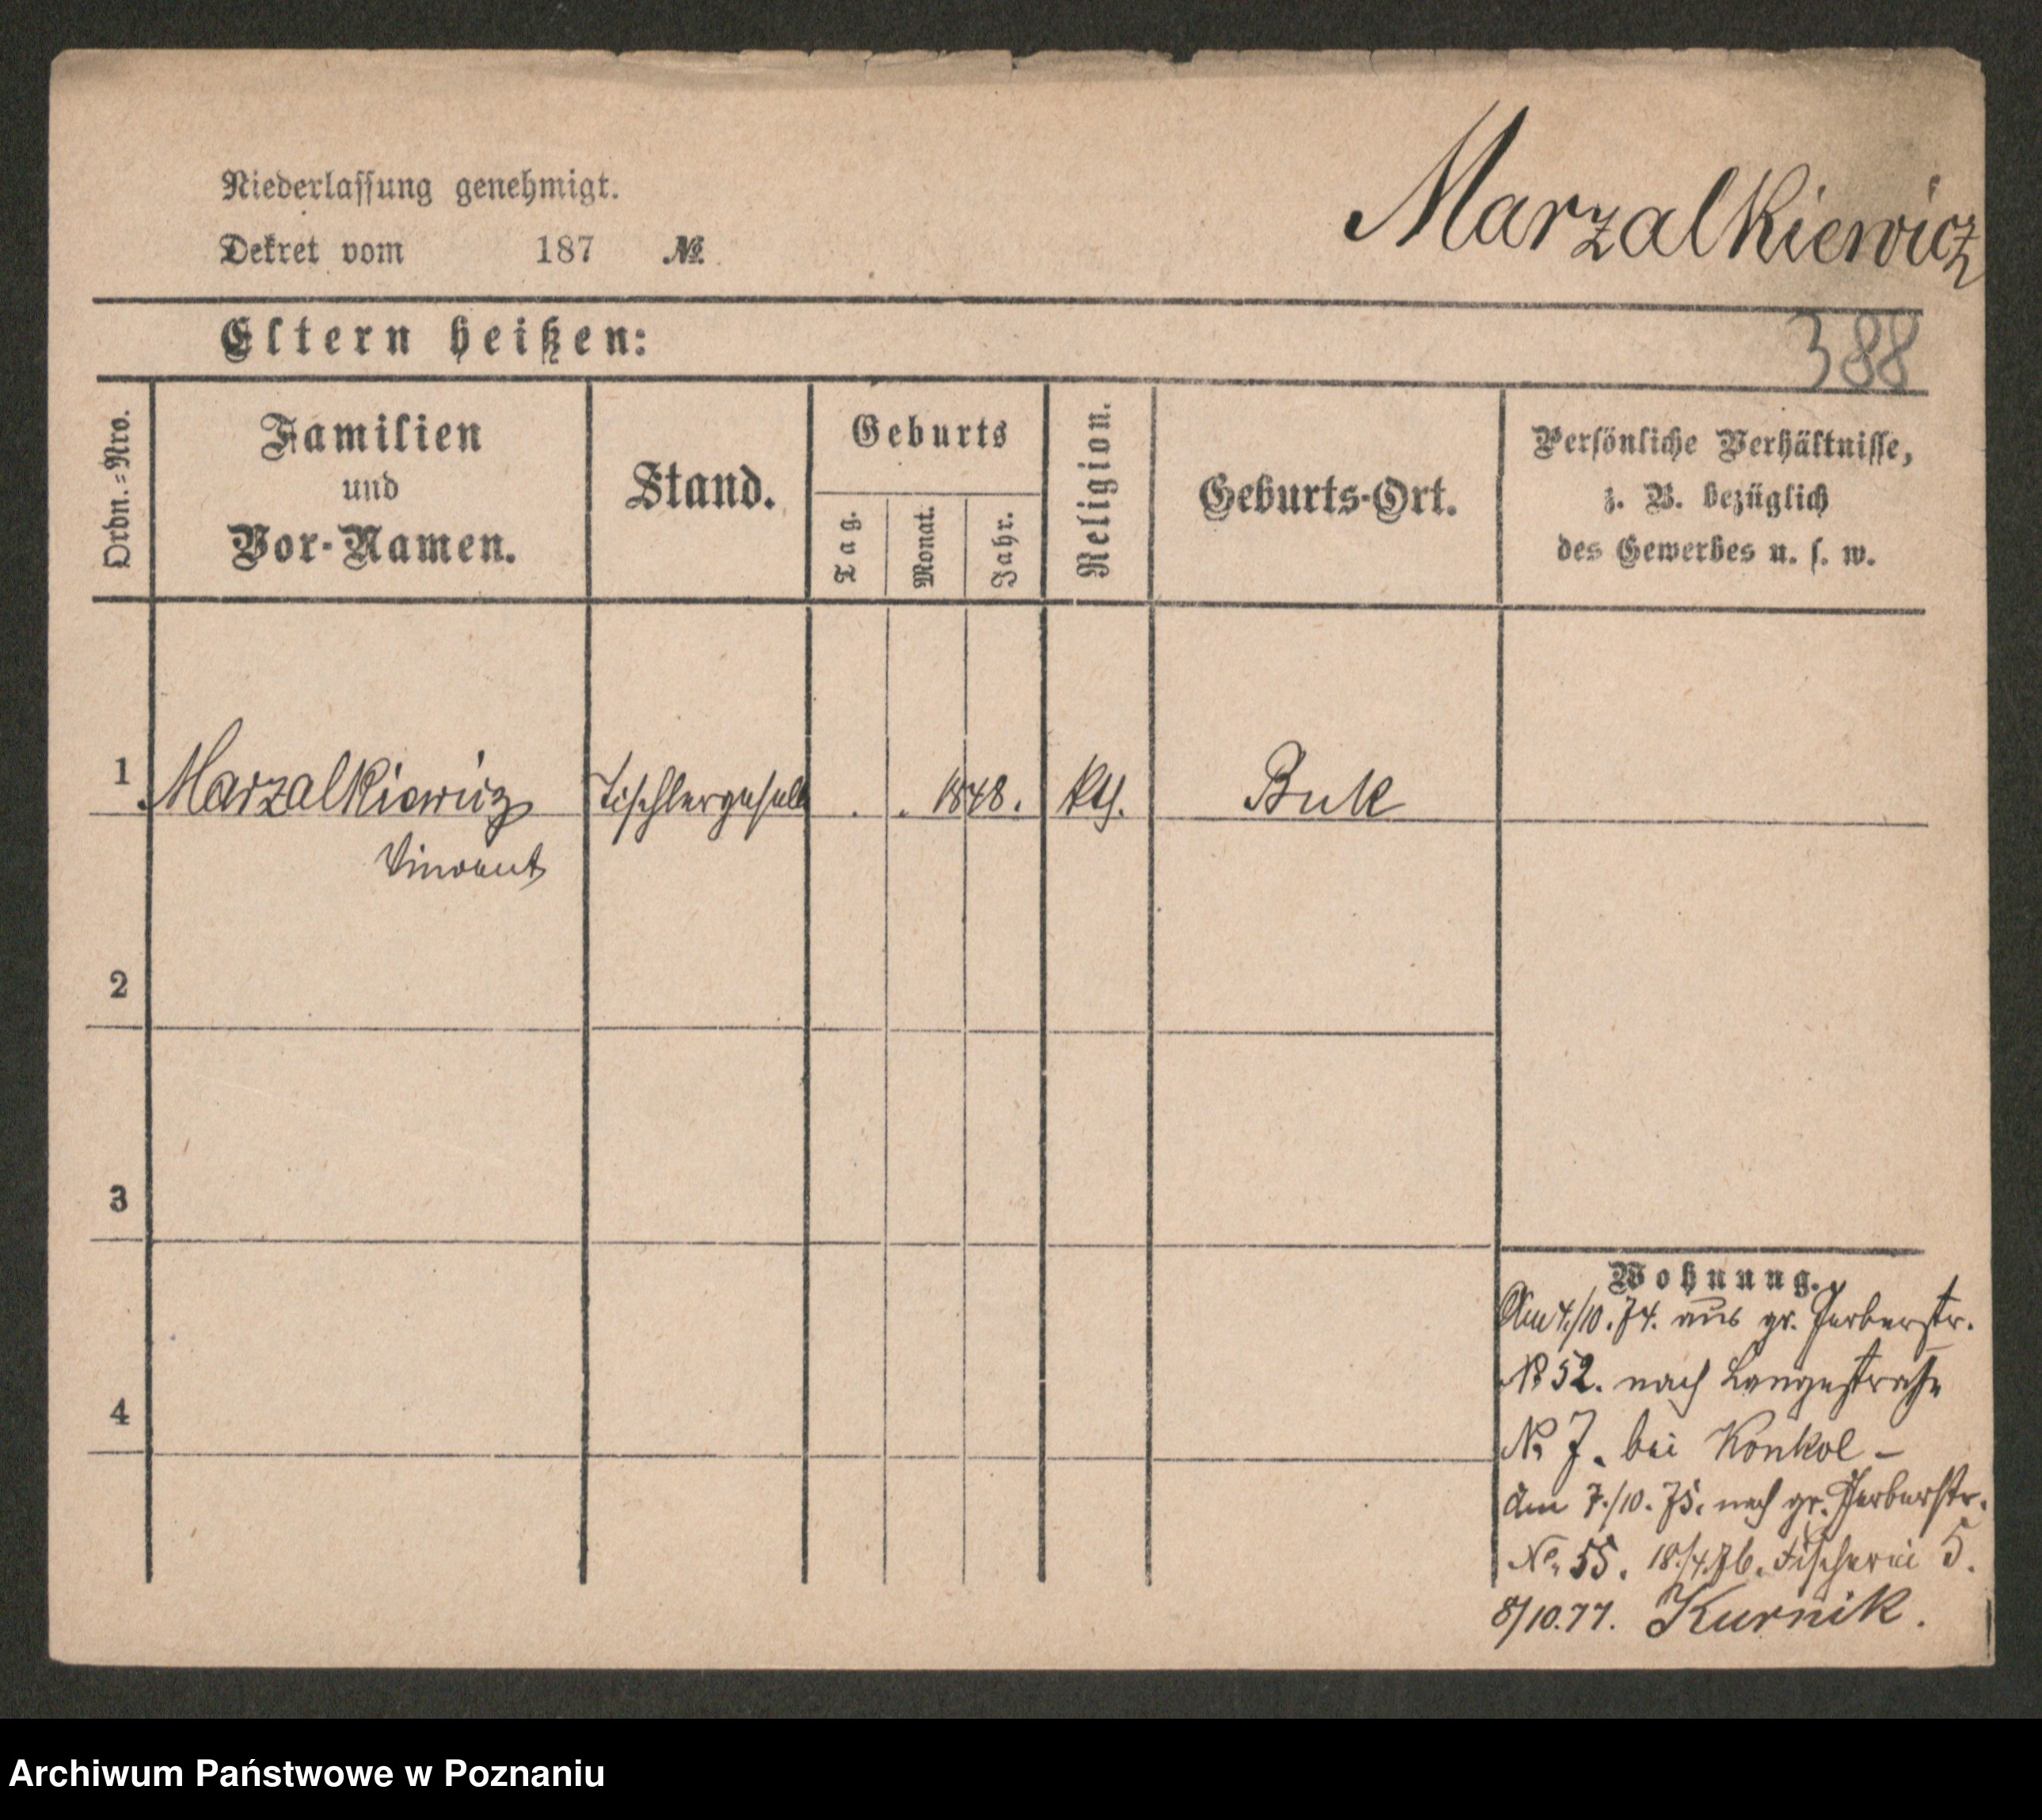 Niederlassung genehmigt.
Dekret vom 187 №
Marzalkiewicz
Eltern heißen:
388
Ordn.-Nro.
Familien
und
Vor-Namen.
Stand.
Geburts
Tag.
Monat.
Jahr.
Religion.
Geburts-Ort.
Persönliche Verhältnisse,
z. B. bezüglich
des Gewerbes u. s. w.
1 Marzalkiewicz Tischlergesell . . 1848. kth. Buk
Vincent
2
3
4
Wohnung.
Am 4./10. 74. aus gr. Gerberstr.
№ 52. nach Langestraße
№ 7. bei Konkol -
Am 7./10. 75. nach gr. Gerberstr.
No. 55. 18./4. 76. Fischerei 5.
8/10. 77. Kurnik.
Archiwum Państwowe w Poznaniu